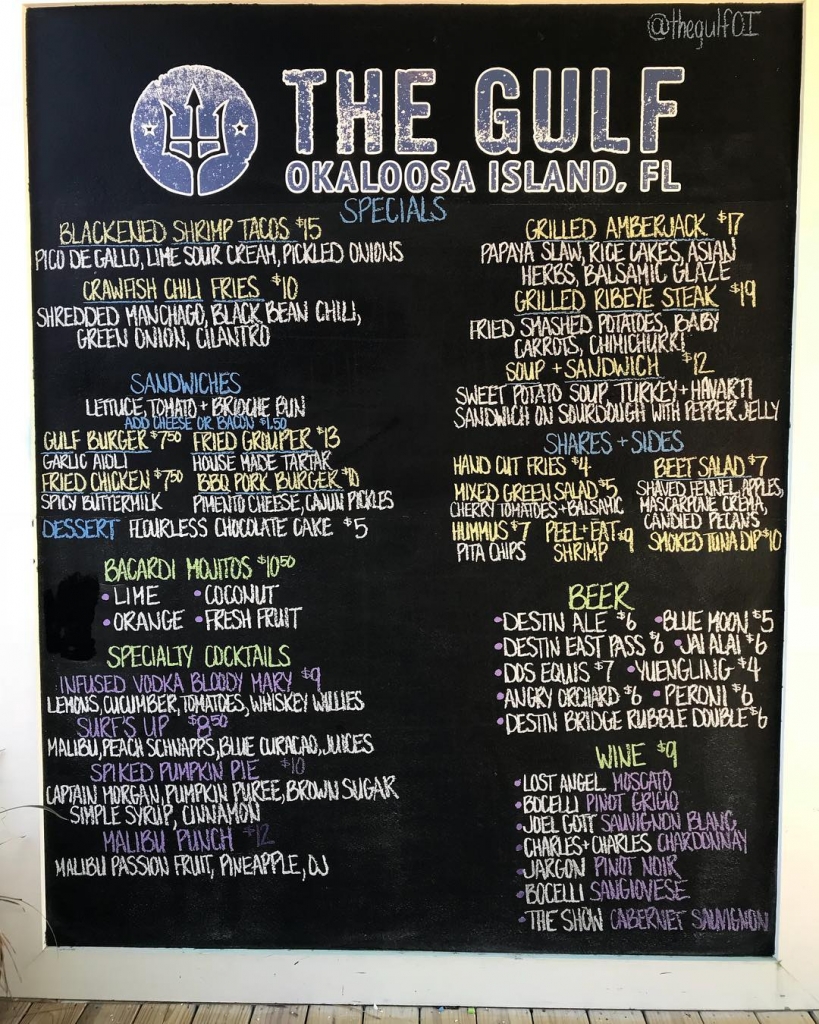 @thegulfOI
THE GULF
OKALOOSA ISLAND, FL
SPECIALS
BLACKENED SHRIMP TACOS $15
PICO DE GALLO, LIME SOUR CREAM, PICKLED ONIONS
CRAWFISH CHILI FRIES $10
SHREDDED MANCHAGO, BLACK BEAN CHILI,
GREEN ONION, CILANTRO
GRILLED AMBERJACK $17
PAPAYA SLAW, RICE CAKES, ASIAN
HERBS, BALSAMIC GLAZE
GRILLED RIBEYE STEAK $19
FRIED SMASHED POTATOES, BABY
CARROTS, CHIMICHURRI
SOUP + SANDWICH $12
SWEET POTATO SOUP, TURKEY + HAVARTI
SANDWICH ON SOURDOUGH WITH PEPPER JELLY
SANDWICHES
LETTUCE, TOMATO + BRIOCHE BUN
ADD CHEESE OR BACON $1.50
GULF BURGER $7.50 FRIED GROUPER $13
GARLIC AIOLI HOUSE MADE TARTAR
FRIED CHICKEN $7.50 BBQ PORK BURGER $10
SPICY BUTTERMILK PIMENTO CHEESE, CAJUN PICKLES
DESSERT FLOURLESS CHOCOLATE CAKE $5
SHARES + SIDES
HAND CUT FRIES $4
MIXED GREEN SALAD $5
CHERRY TOMATOES + BALSAMIC
HUMMUS $7 PEEL + EAT $9
PITA CHIPS SHRIMP
BEET SALAD $7
SHAVED FENNEL, APPLES,
MASCARPONE CREMA,
CANDIED PECANS
SMOKED TUNA DIP $10
BACARDI MOJITOS $10.50
• LIME • COCONUT
• ORANGE • FRESH FRUIT
SPECIALTY COCKTAILS
INFUSED VODKA BLOODY MARY $9
LEMONS, CUCUMBER, TOMATOES, WHISKEY WILLIES
SURF'S UP $8.50
MALIBU, PEACH SCHNAPPS, BLUE CURACAO, JUICES
SPIKED PUMPKIN PIE $10
CAPTAIN MORGAN, PUMPKIN PUREE, BROWN SUGAR
SIMPLE SYRUP, CINNAMON
MALIBU PUNCH $12
MALIBU PASSION FRUIT, PINEAPPLE, OJ
BEER
• DESTIN ALE $6 • BLUE MOON $5
• DESTIN EAST PASS $6 • JAI ALAI $6
• DOS EQUIS $7 • YUENGLING $4
• ANGRY ORCHARD $6 • PERONI $6
• DESTIN BRIDGE RUBBLE DOUBLE $6
WINE $9
• LOST ANGEL MOSCATO
• BOCELLI PINOT GRIGIO
• JOEL GOTT SAUVIGNON BLANC
• CHARLES + CHARLES CHARDONNAY
• JARGON PINOT NOIR
• BOCELLI SANGIOVESE
• THE SHOW CABERNET SAUVIGNON